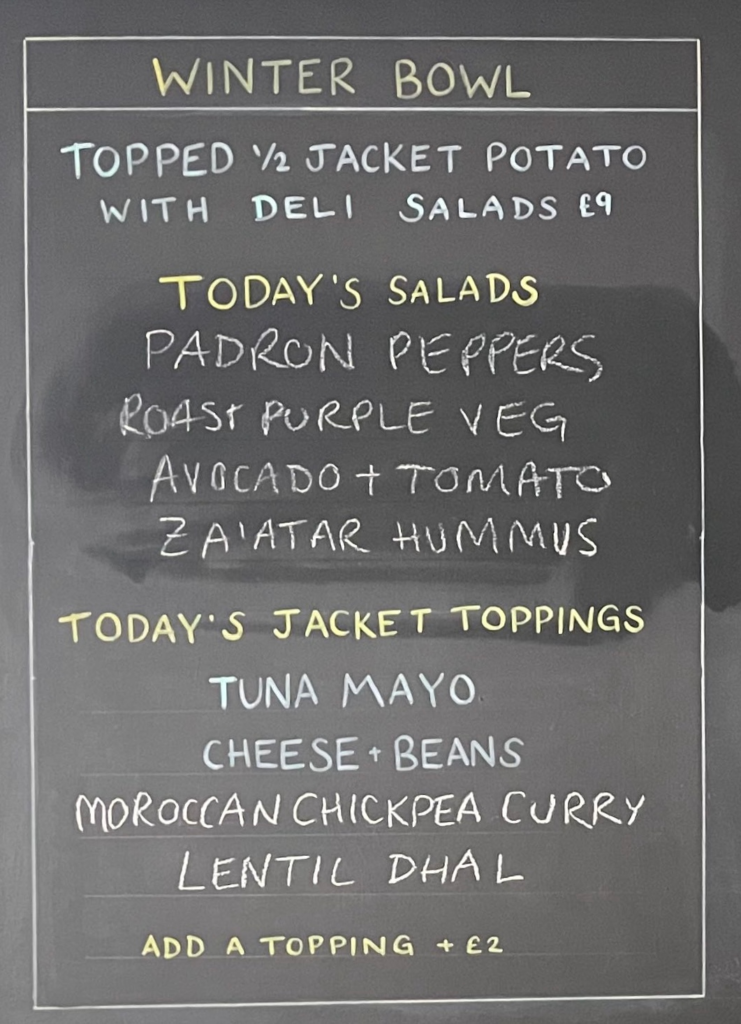 WINTER BOWL
TOPPED 1/2 JACKET POTATO
WITH DELI SALADS £9
TODAY'S SALADS
PADRON PEPPERS
ROAST PURPLE VEG
AVOCADO + TOMATO
ZA'ATAR HUMMUS
TODAY'S JACKET TOPPINGS
TUNA MAYO
CHEESE + BEANS
MOROCCAN CHICKPEA CURRY
LENTIL DHAL
ADD A TOPPING + £2